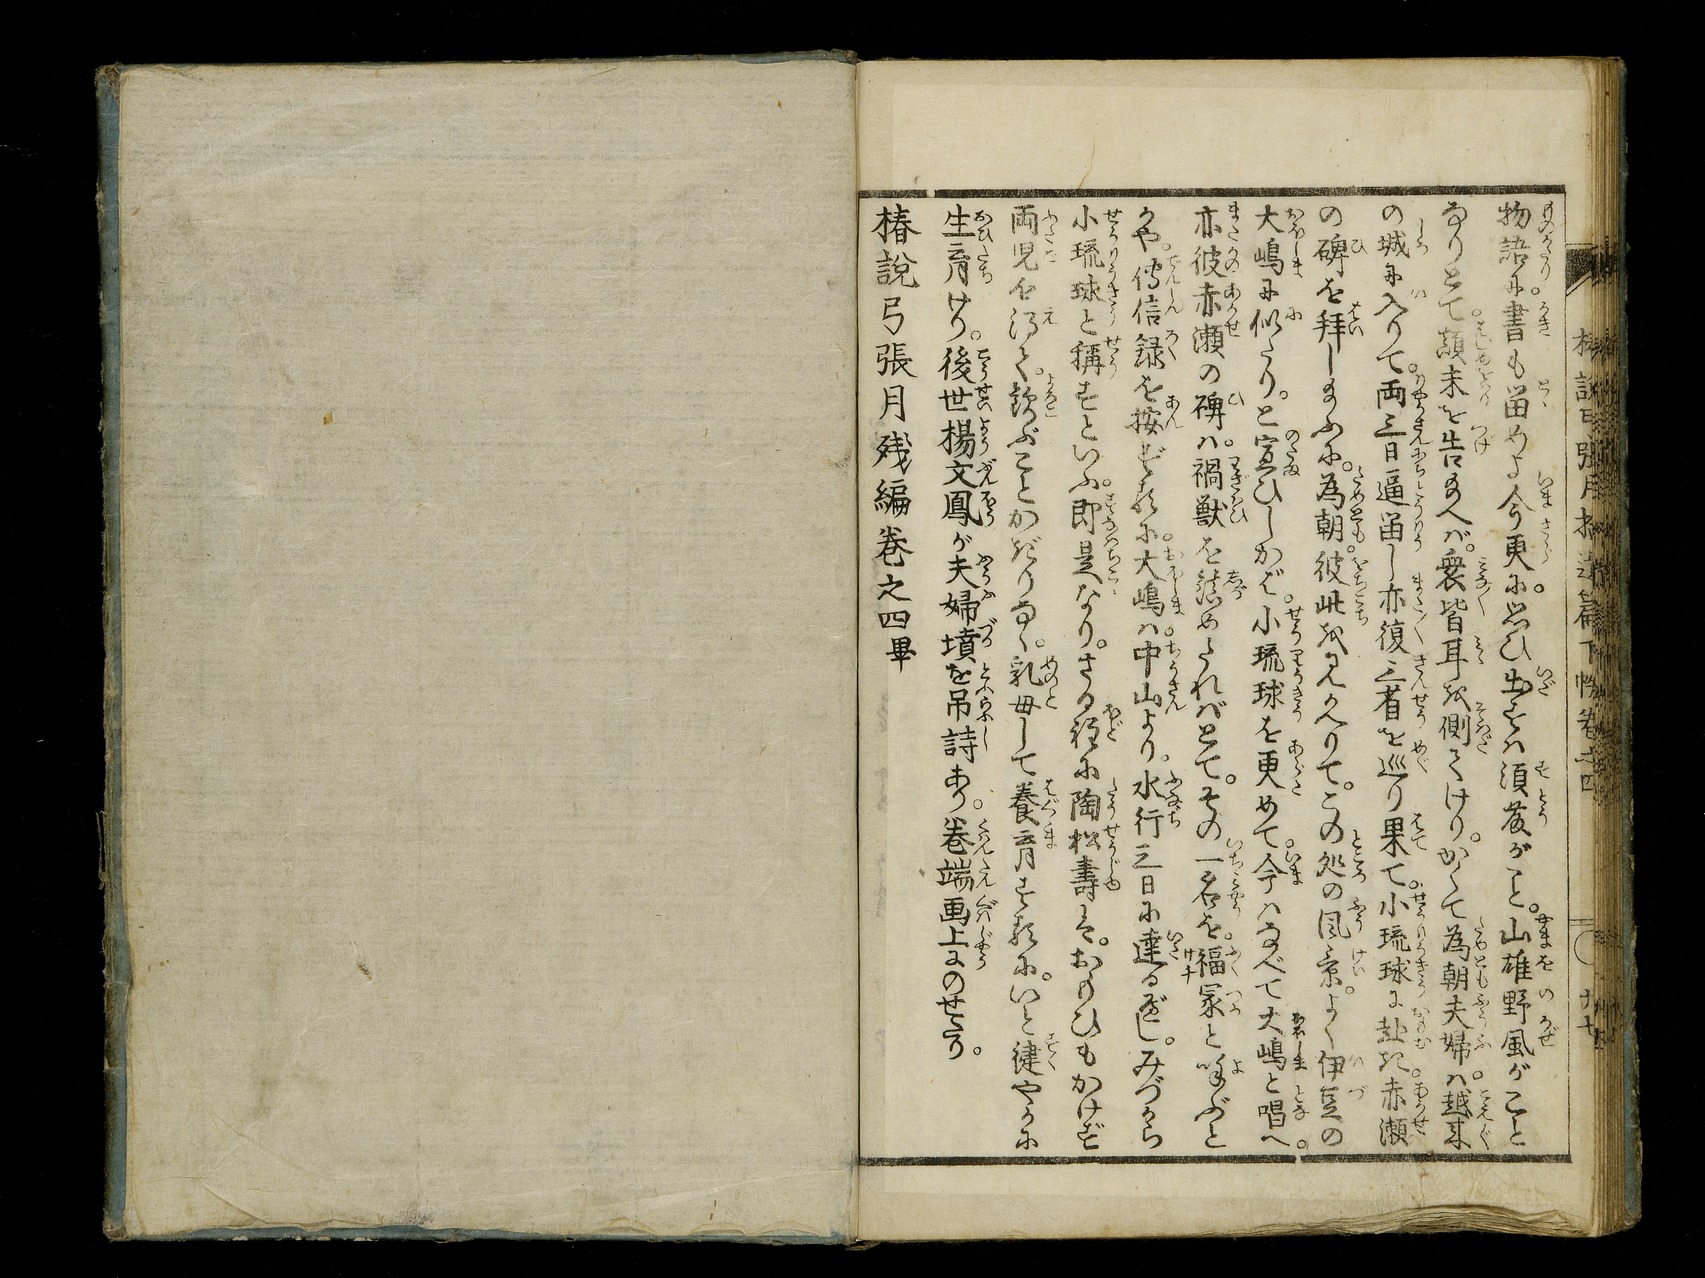 物語に書も留めよ今更に。思ひ出すは須藤がこと。山雄野風がこと
なりとて。顛末を告給へば。衆皆耳を側てけり。かくて為朝夫婦は。越来
の城に入りて。両三日逼留し亦復三省を巡り果て。小琉球に赴き。赤瀬
の碑を拝し給ふに。為朝。彼此を見かへりて。この処の風景。よく伊豆の
大嶋に似たり。と宣ひしかば。小琉球を更めて。今はなべて大嶋と唱へ。
亦彼赤瀬の碑は。禍獣を鎮めたればとて。その一名を。福冢と呼ぶと
かや。伝信録を按ずるに。大嶋は。中山より。水行三日に達るべし。みづから
小琉球と稱すといふ。即是なり。さる程に陶松壽は。おもひもかけず
両児を得て。歓ぶことかぎりなく。乳母して養育するに。いと健やかに
生育けり。後世楊文鳳が夫婦墳を吊詩あり。巻端画上にのせたり。
椿説弓張月残編巻之四畢
椿説弓張月拾遺篇下帙巻之四
十七